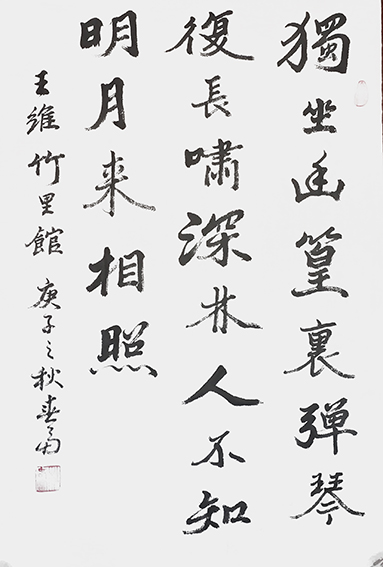 獨坐幽篁裏弹琴
復長嘯深林人不知
明月来相照
王維竹里館 庚子之秋春